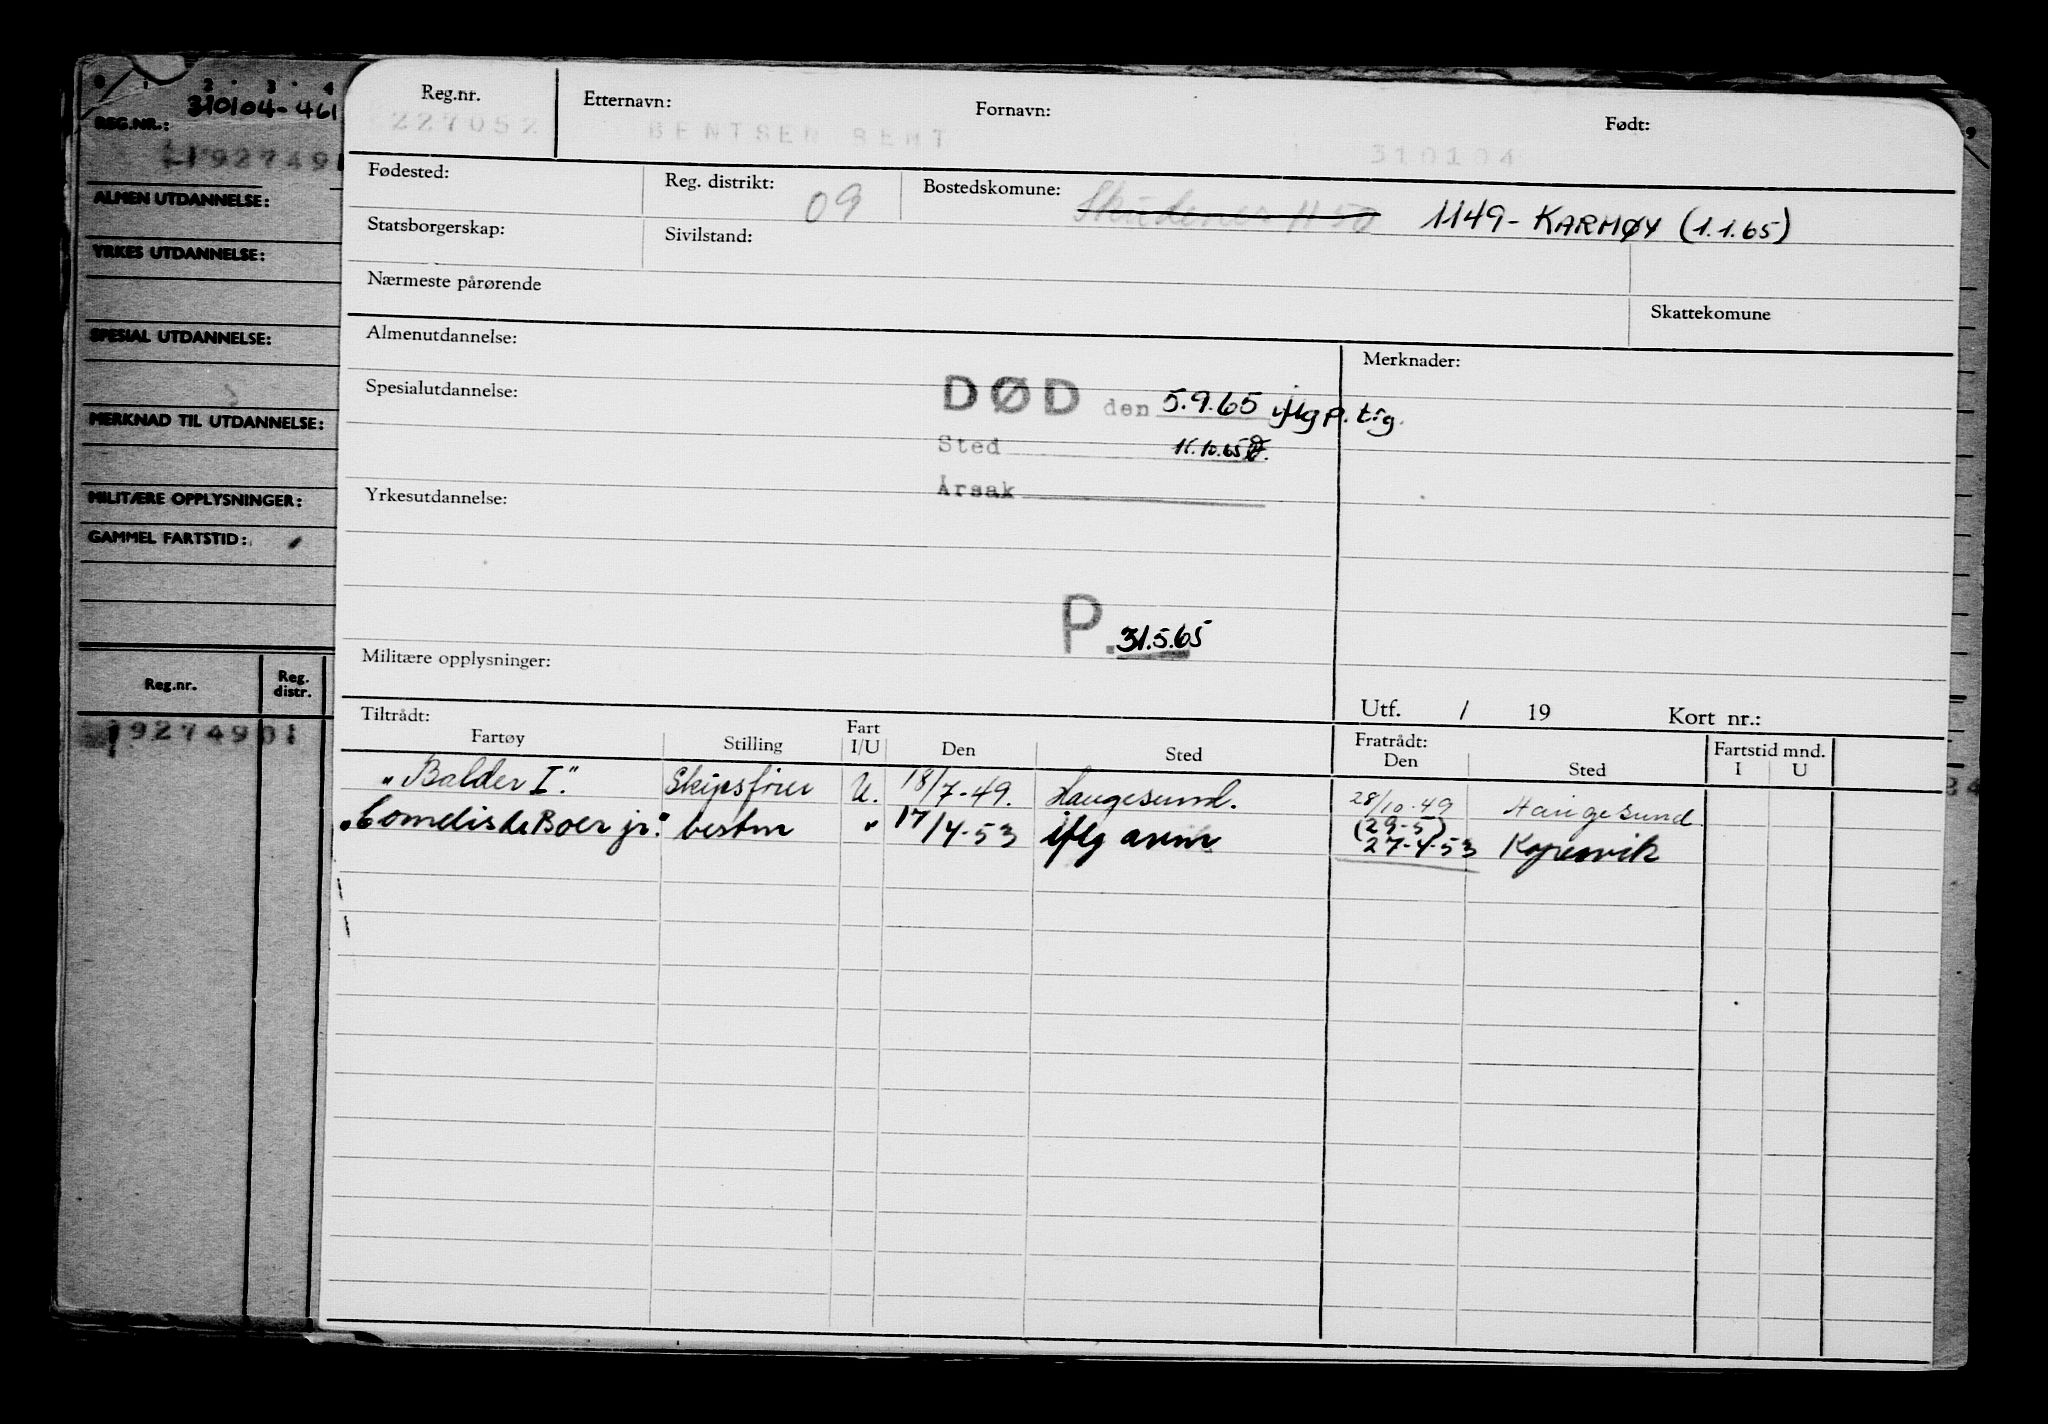 0 1 2 3 4
310104-461
REG.NR.:
ALMEN UTDANNELSE:
YRKES UTDANNELSE:
SPESIAL UTDANNELSE:
MERKNAD TIL UTDANNELSE:
MILITÆRE OPPLYSNINGER:
GAMMEL FARTSTID:
Reg.nr. Reg. distr.
9274901
9
24
Reg.nr. Etternavn: Fornavn: Født:
227052 BENTSEN BENT 310104
Fødested: Reg. distrikt: 09 Bostedskomune: Skudenes 1150 1149-KARMØY (1.1.65)
Statsborgerskap: Sivilstand:
Nærmeste pårørende
Skattekomune
Almenutdannelse: Merknader:
Spesialutdannelse:
DØD den 5.9.65 iflg p. tlg.
Sted 11.10.65
Årsak
Yrkesutdannelse:
P. 31.5.65
Militære opplysninger:
Utf. / 19 Kort nr.:
Tiltrådt: Fratrådt: Fartstid mnd.
Fartøy Stilling Fart I/U Den Sted Den Sted I U
"Balder I." Skipsfører U. 18/7-49. Haugesund. 28/10-49 Haugesund
"Cornelis de Boer jr." bestm " 17/4-53 iflg avm (29-5) 27-4-53 Kopervik